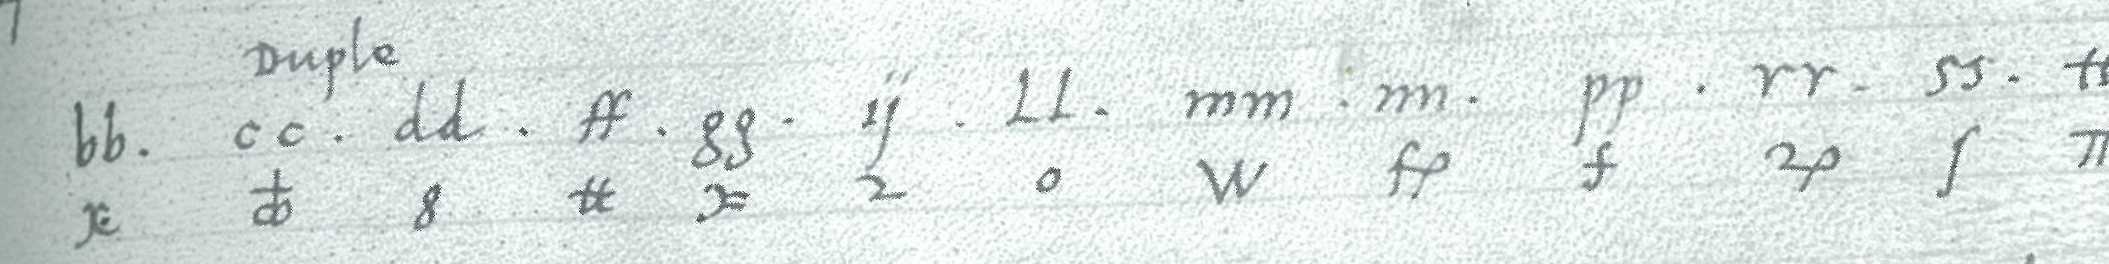 Duple
bb. cc. dd. ff. gg. ij. LL. mm. nn. pp. rr. ss. tt
8 2 o W f ʃ π